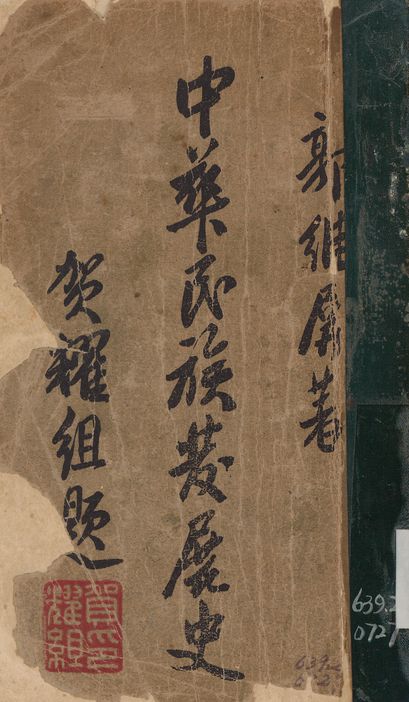 郭維屏著
中華民族發展史
賀耀組題
賀印
耀組
639.2
0727